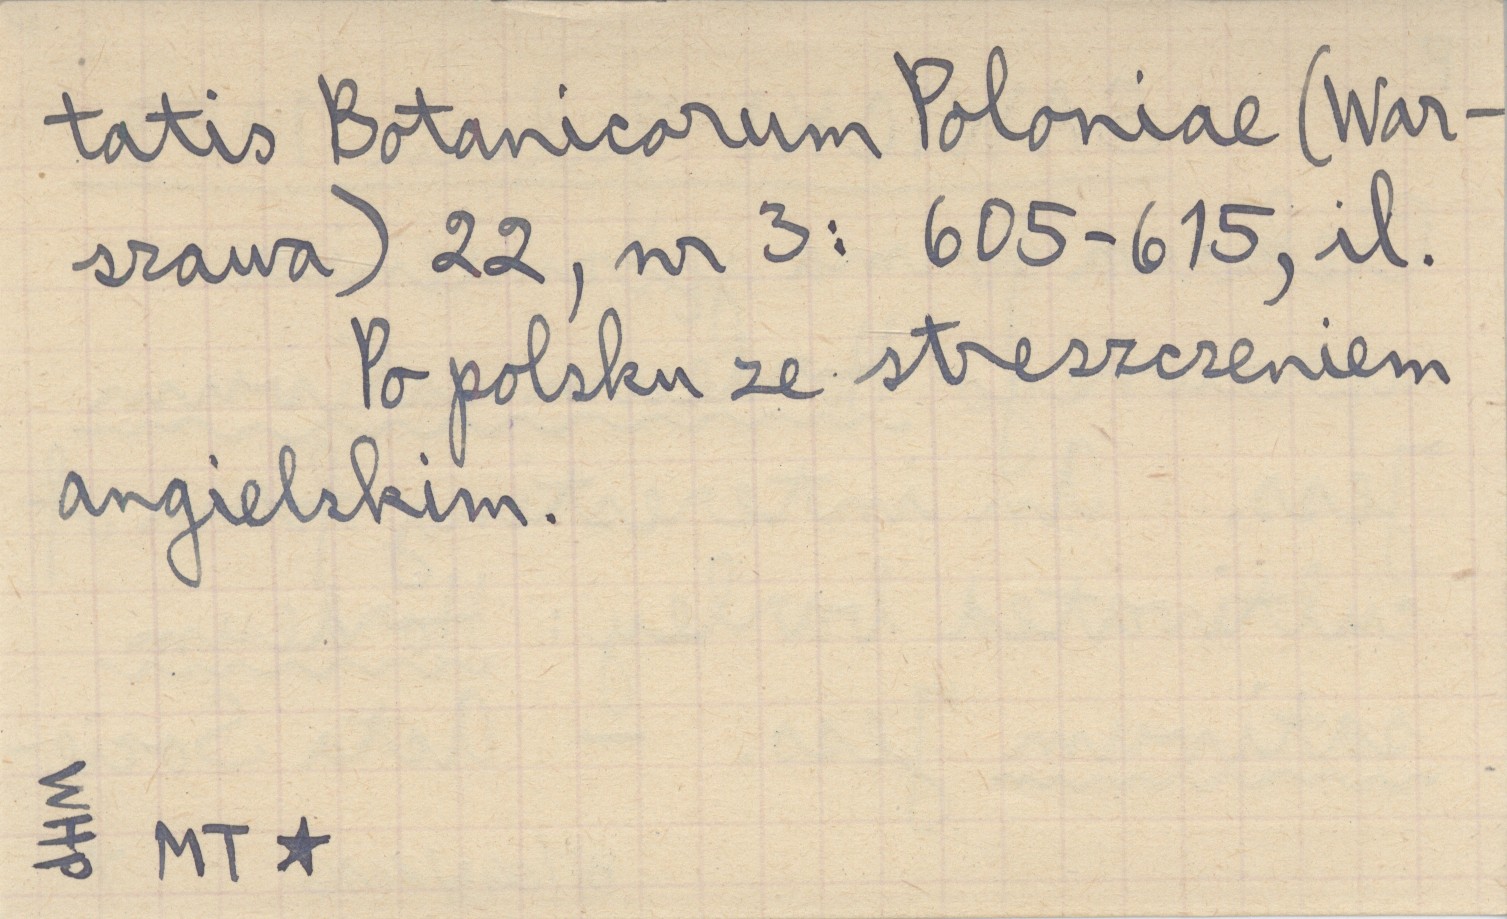 tatis Botanicorum Poloniae (War-
szawa) 22, nr 3: 605-615, il.
Po polsku ze streszczeniem
angielskim.
WHP
MT ★